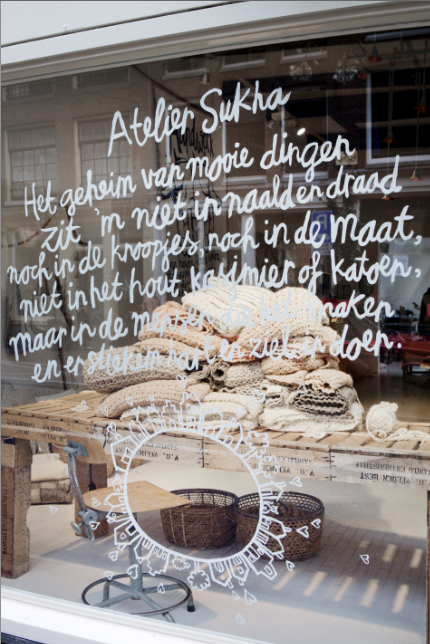 Atelier Sukha
Het geheim van mooie dingen
zit 'm niet in naald en draad
noch in de knoopjes, noch in de maat,
niet in het hout, kasjmier of katoen,
maar in de mensen die het maken
en er stiekem hart en ziel in doen.